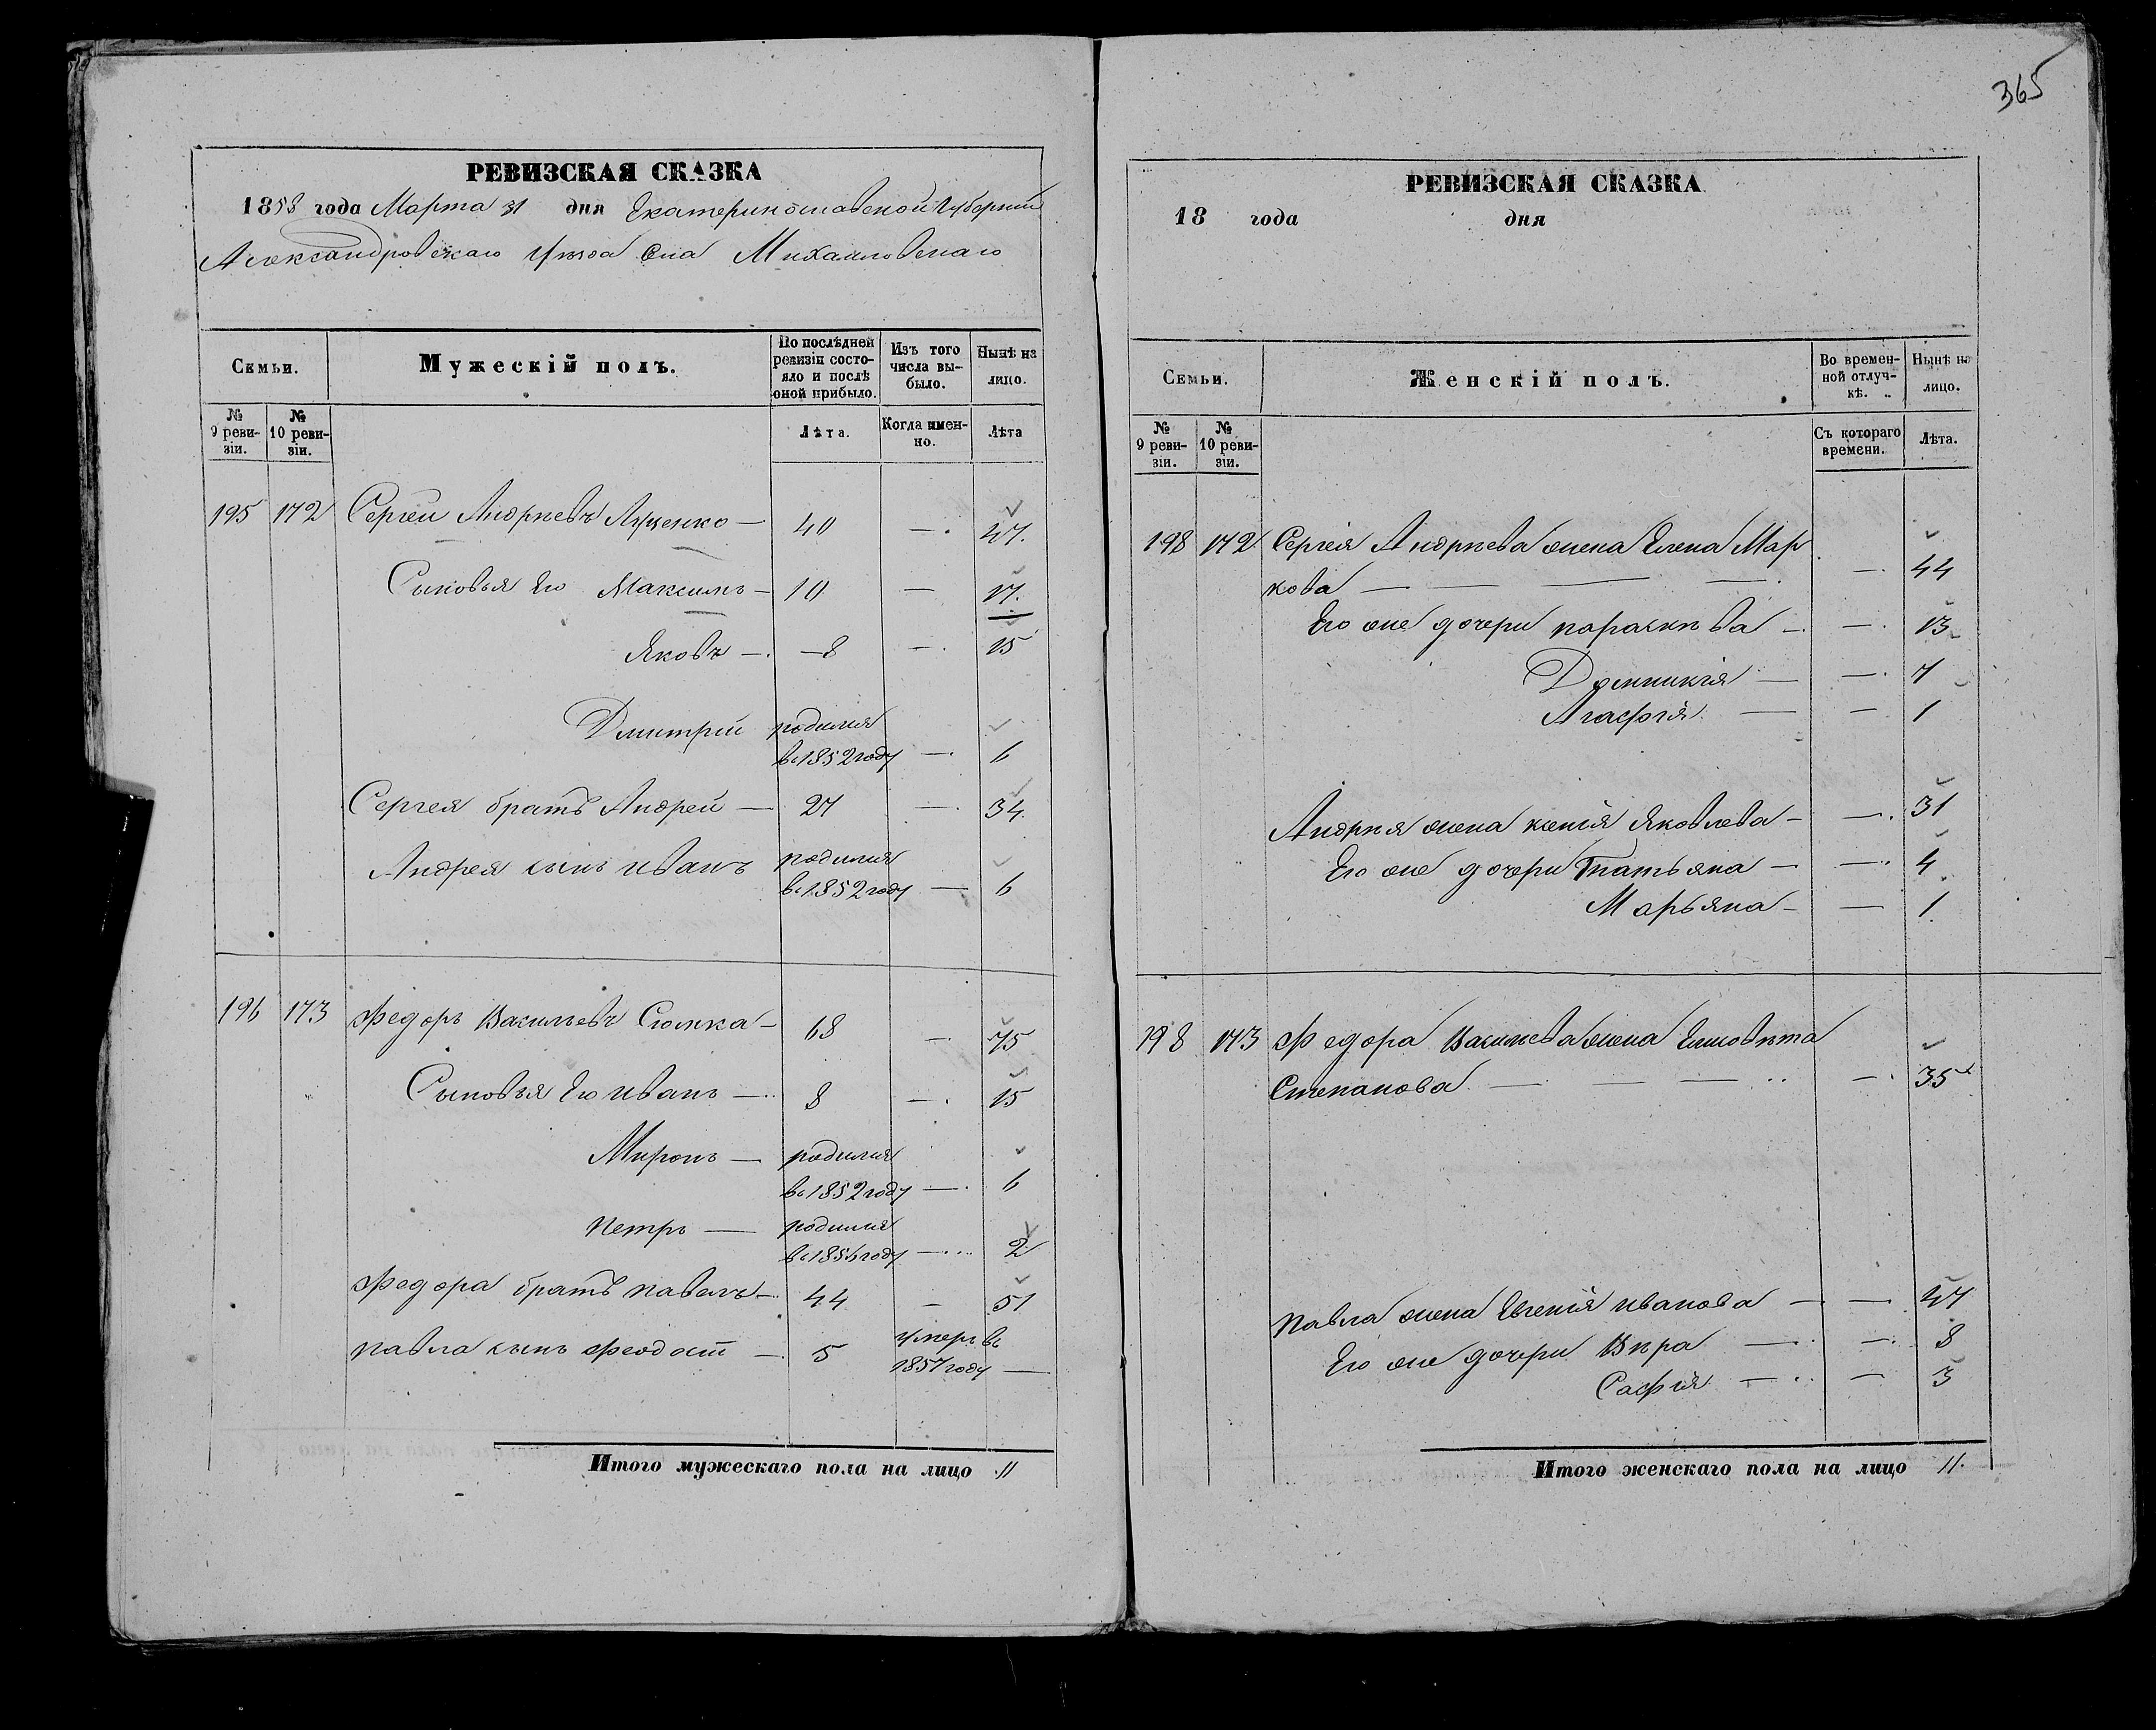 365
РЕВИЗСКАЯ СКАЗКА
1858 года Марта 31 дня Екатеринославской Губернии
Александровскаго Уезда Села Михайловскаго
Семьи.
Мужескій полъ.
По послѣдней ревизіи состояло и послѣ оной прибыло.
Изъ того числа выбыло.
Нынѣ на лицо.
№ 9 ревизіи.
№ 10 ревизіи.
Лѣта.
Когда именно.
Лѣта
195 172 Сергей Андреевъ Луценко — 40 — 47.
Сыновья Его Максимъ — 10 — 17.
Яковъ — 8 — 15
Дмитрий родился
въ 1852 году — 6
Сергея братъ Андрей — 27 — 34.
Андрея сынъ Иванъ родился
въ 1852 году — 6
196 173 Федоръ Васильевъ Сюмка — 68 — 75
Сыновья Его Иванъ — 8 — 15
Миронъ — родился
въ 1852 году — 6
Петръ — родился
въ 1856 году — 2
Федора братъ Павелъ — 44 — 51
Павла сынъ Феодот — 5 умеръ въ
1857 году —
Итого мужескаго пола на лицо 11
РЕВИЗСКАЯ СКАЗКА
18 года дня
Семьи.
Женскій полъ.
Во временной отлучкѣ.
Нынѣ на лицо.
№ 9 ревизіи.
№ 10 ревизіи.
Съ котораго времени.
Лѣта.
198 172 Сергея Андреева жена Елена Мар
кова — — 44
Его же дочери Параскѣва — — 13
Домникія — — 7
Агафія — — 1
Андрѣя жена Ксенія Яковлева — — 31
Его же дочери Татьяна — — 4
Марьяна — — 1
198 173 Федора Васильева жена Елисовѣта
Степанова — — 35
Павла жена Евгенія Иванова — — 47
Его же дочери Вѣра — — 8
Сафія — — 3
Итого женскаго пола на лицо 11.